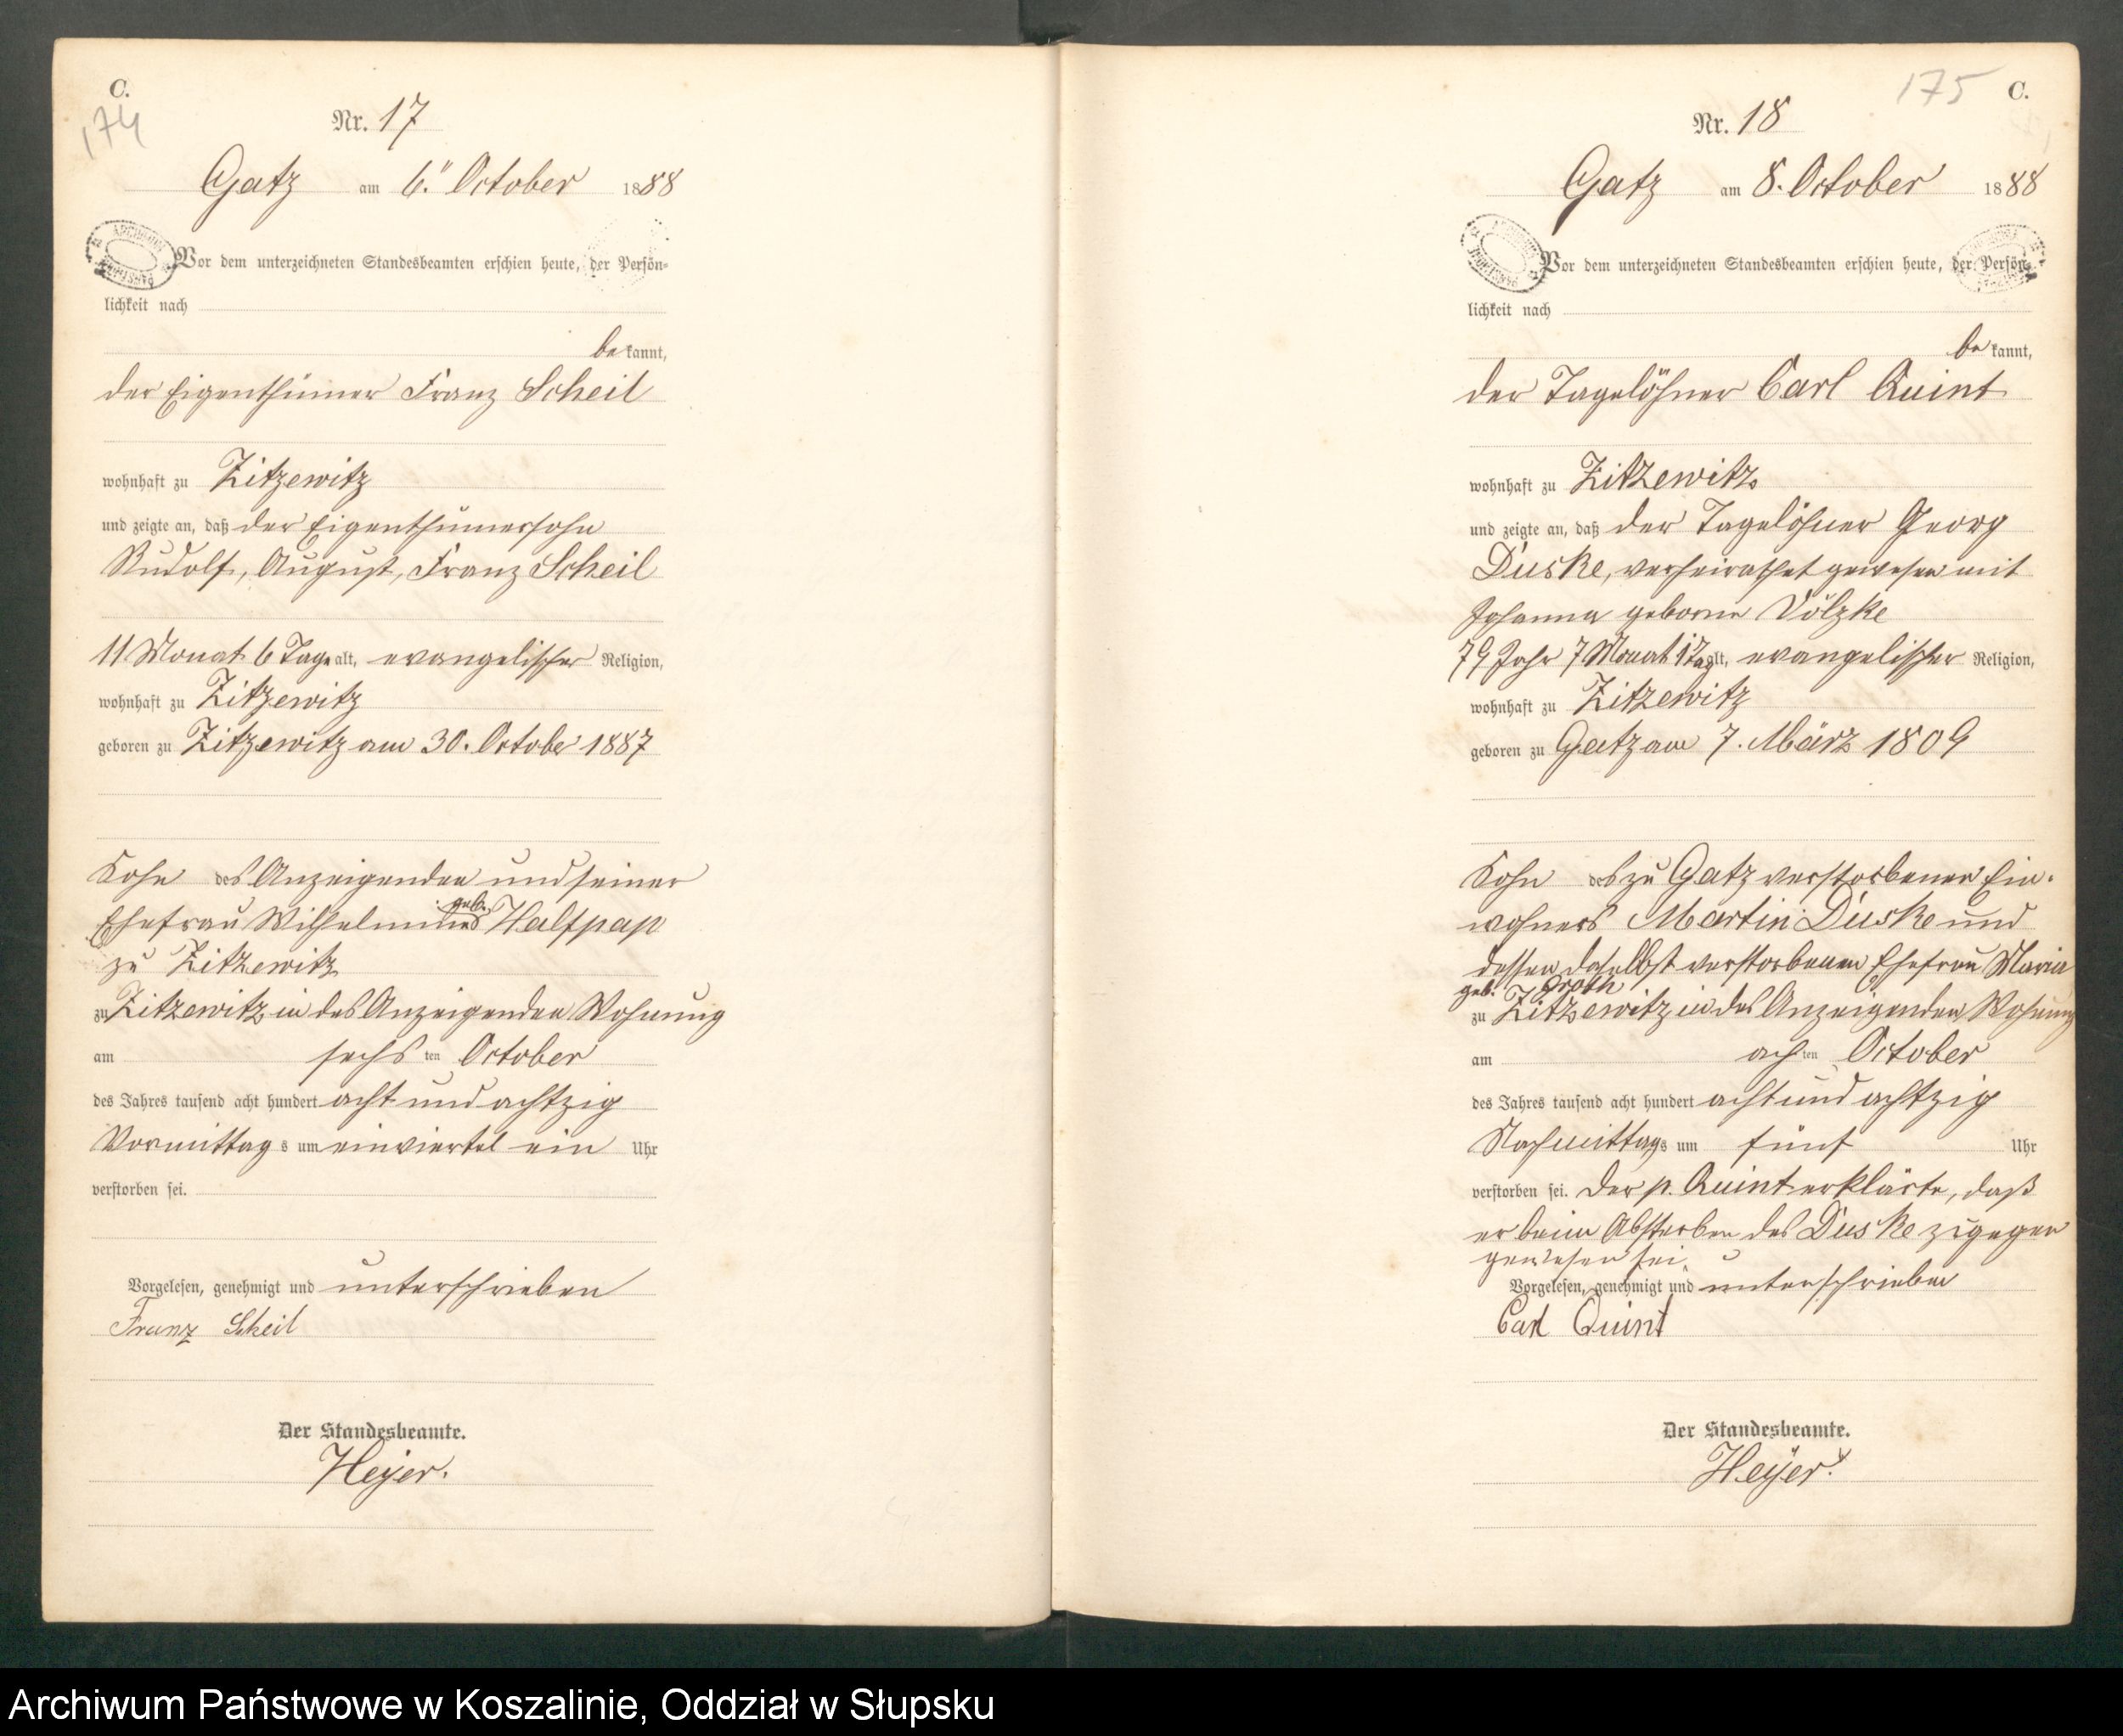 C.
174
Nr. 17
Gatz am 6. October 1888
Vor dem unterzeichneten Standesbeamten erschien heute, der Persön-
lichkeit nach
bekannt,
der Eigenthümer Franz Scheil
wohnhaft zu Zitzewitz
und zeigte an, daß der Eigenthümersohn
Rudolf, August, Franz Scheil
11 Monat 6 Tage alt, evangelischer Religion,
wohnhaft zu Zitzewitz
geboren zu Zitzewitz am 30. October 1887
Sohn des Anzeigenden und seiner
geb.
Ehefrau Wilhelmine Halfpap
zu Zitzewitz
zu Zitzewitz in des Anzeigenden Wohnung
am sechsten October
des Jahres tausend acht hundert acht und achtzig
Vormittags um einviertel ein Uhr
verstorben sei.
Vorgelesen, genehmigt und unterschrieben
Franz Scheil
Der Standesbeamte.
Heyer.
175 C.
Nr. 18
Gatz am 8. October 1888
Vor dem unterzeichneten Standesbeamten erschien heute, der Persön-
lichkeit nach
bekannt,
der Tagelöhner Carl Quint
wohnhaft zu Zitzewitz
und zeigte an, daß der Tagelöhner Georg
Duske, verheirathet gewesen mit
Johanna geborne Völzke
79 Jahr 7 Monat 1 Tag alt, evangelischer Religion,
wohnhaft zu Zitzewitz
geboren zu Gatz am 7. März 1809
Sohn des zu Gatz verstorbenen Ein-
wohners Martin Duske und
dessen daselbst verstorbenen Ehefrau Maria
geb. Groth
zu Zitzewitz in des Anzeigenden Wohnung
am achten October
des Jahres tausend acht hundert acht und achtzig
Nachmittags um fünf Uhr
verstorben sei. Der p. Quint erklärte, daß
er beim Absterben des Duske zugegen
gewesen sei.
Vorgelesen, genehmigt und unterschrieben
Carl Quint
Der Standesbeamte.
Heyer.
Archiwum Państwowe w Koszalinie, Oddział w Słupsku